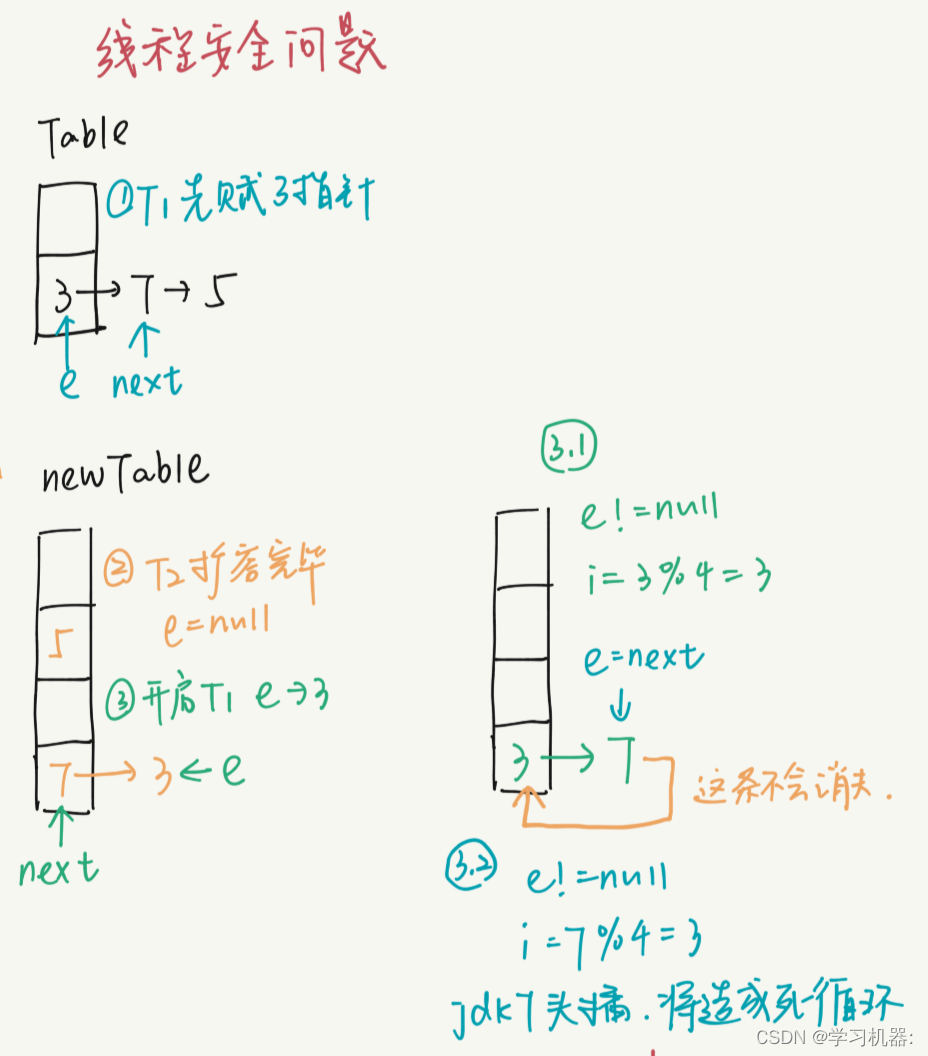 线程安全问题
Table
①T1先赋3指针
3→7→5
e next
newTable
②T2扩容完毕
e=null
5
③开启T1 e→3
7→3←e
next
3.1
e!=null
i=3%4=3
e=next
3→7
这条不会消失.
3.2
e!=null
i=7%4=3
jdk7头插.将造成死循环
CSDN @学习机器: